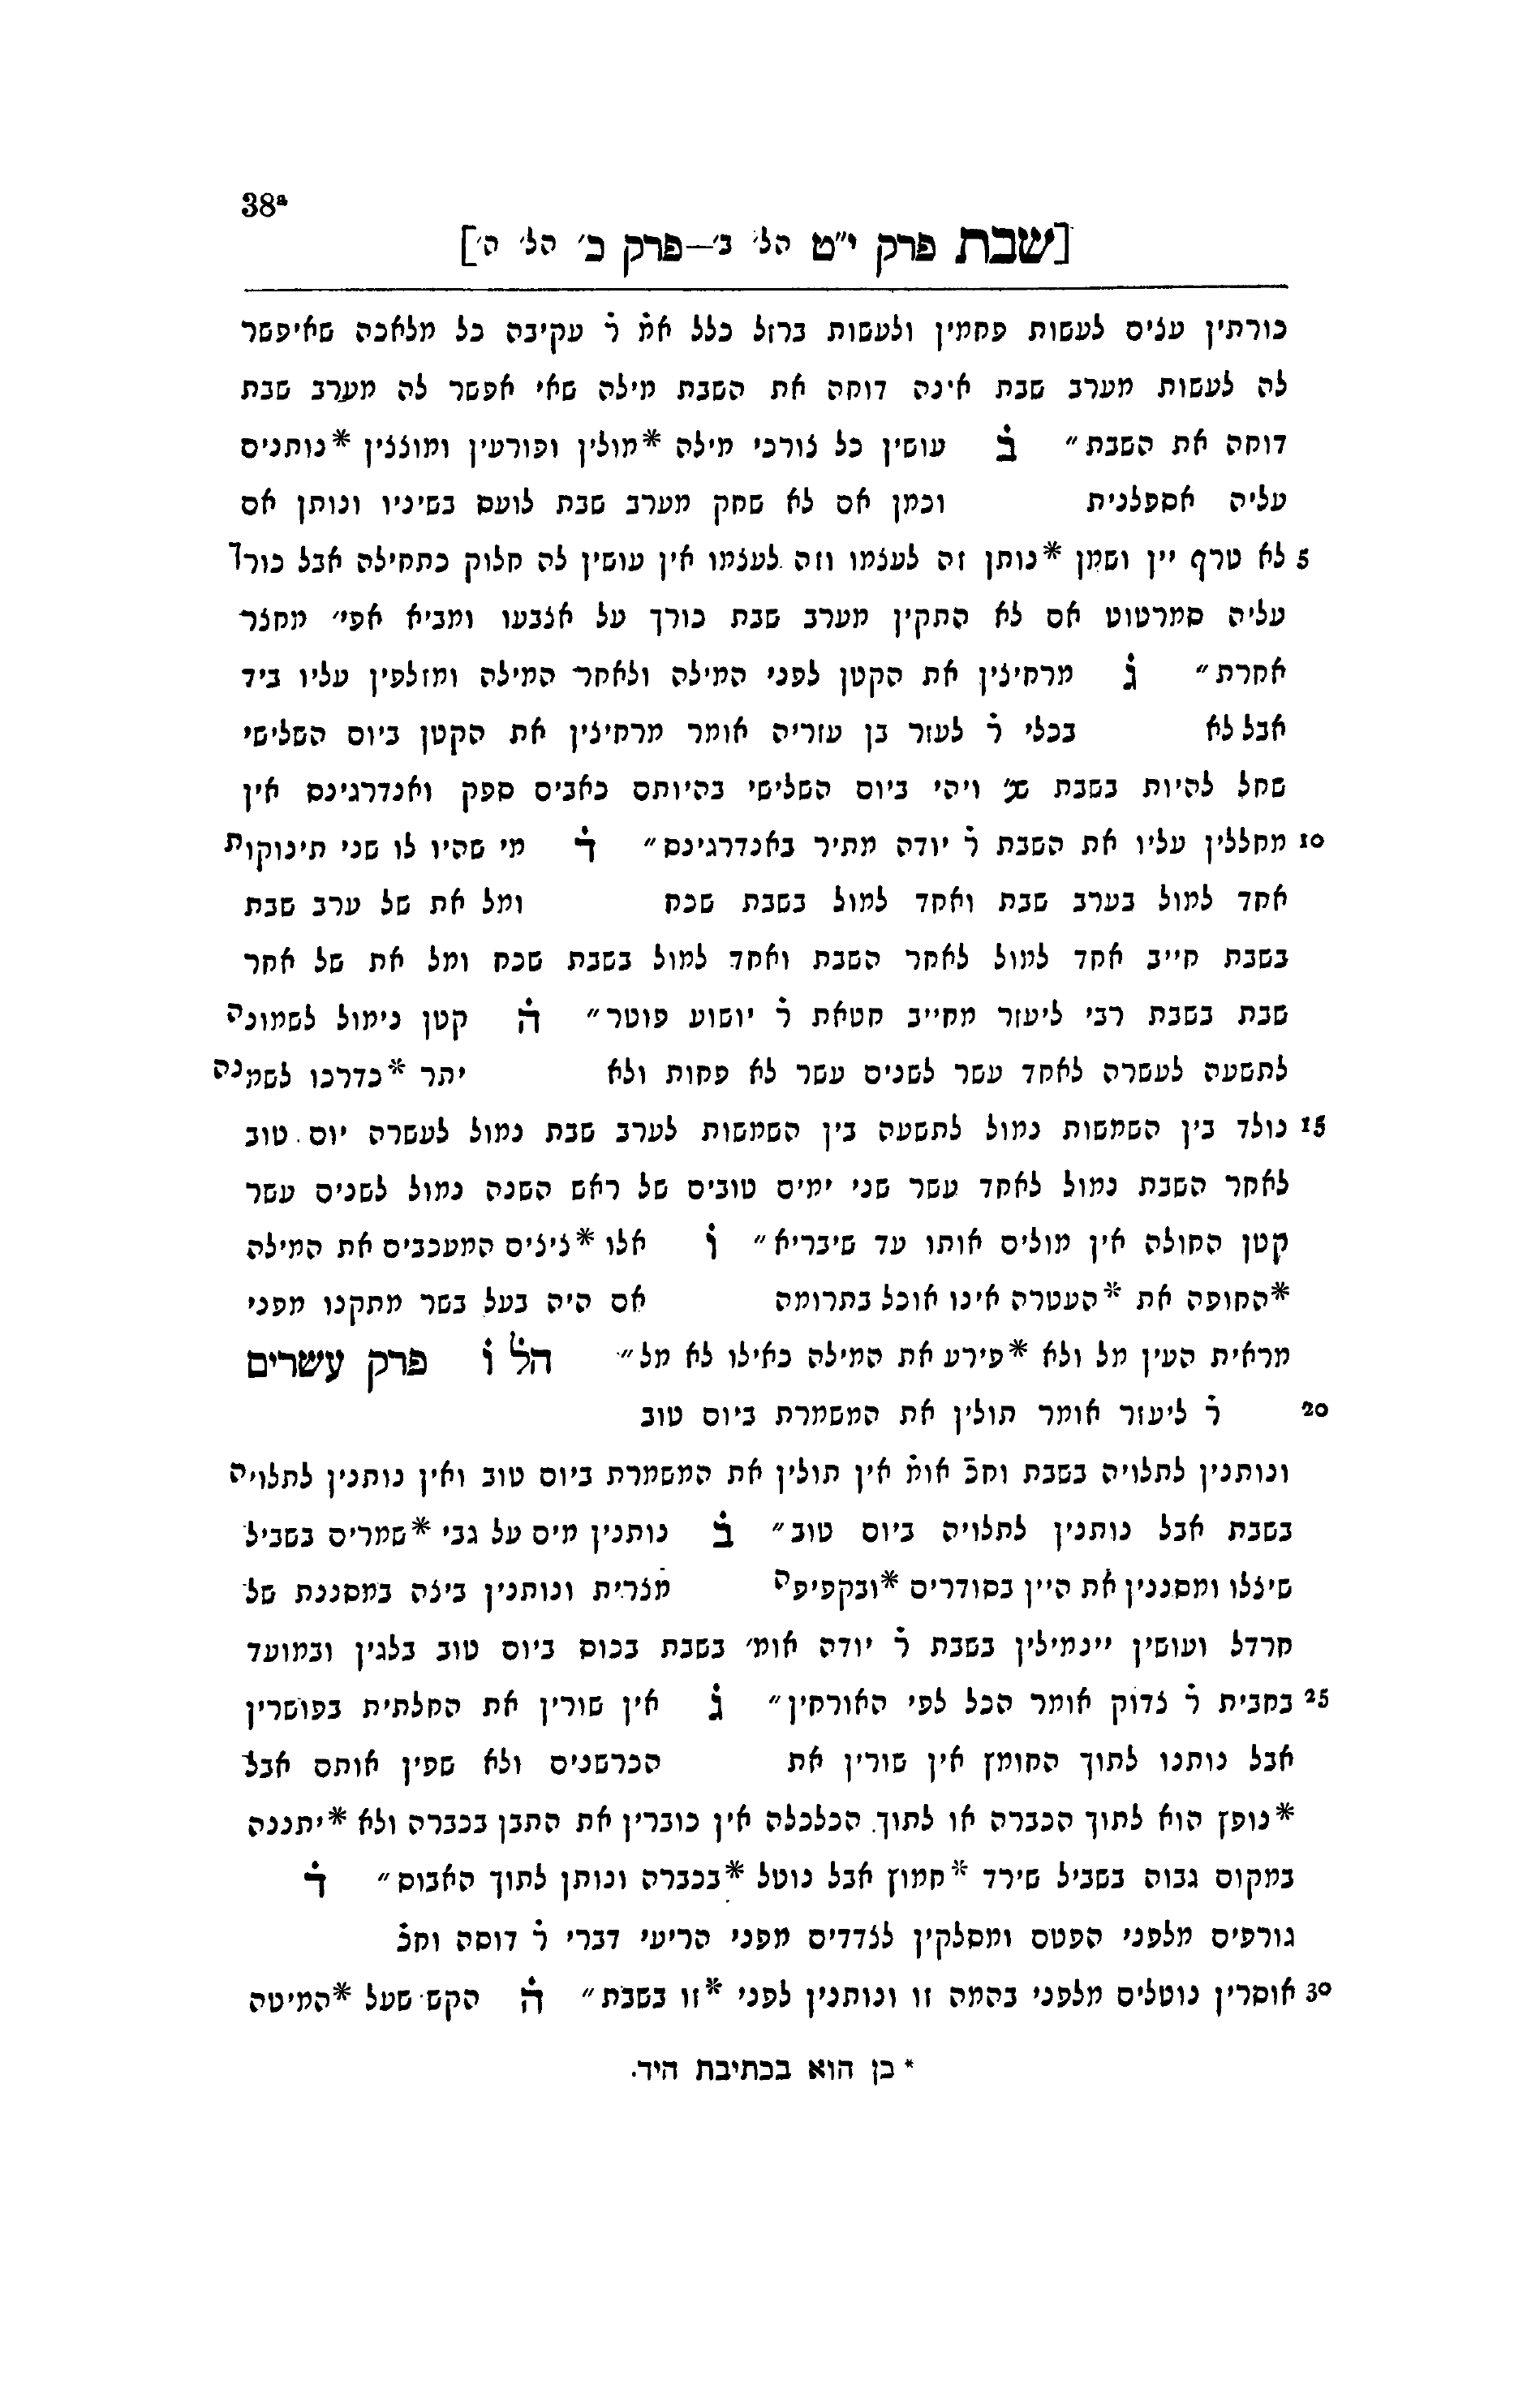 38ª
[שבת פרק י״ט הל׳ ב׳—פרק כ׳ הל׳ ה׳]
כורתין עצים לעשות פחמין ולעשות ברזל כלל אמ̇ ר̇ עקיבה כל מלאכה שאיפשר
לה לעשות מערב שבת אינה דוחה את השבת מילה שאי אפשר לה מערב שבת
דוחה את השבת״ ב̇ עושין כל צורכי מילה *מולין ופורעין ומוצצין *נותנים
עליה אספלנית וכמן אם לא שחק מערב שבת לועס בשיניו ונותן אם
5 לא טרף יין ושמן *נותן זה לעצמו וזה לעצמו אין עושין לה חלוק כתחילה אבל כורך
עליה סמרטוט אם לא התקין מערב שבת כורך על אצבעו ומביא אפי׳ מחצר
אחרת״ ג̇ מרחיצין את הקטן לפני המילה ולאחר המילה ומזלפין עליו ביד
אבל לא בכלי ר̇ לעזר בן עזריה אומר מרחיצין את הקטן ביום השלישי
שחל להיות בשבת שנ׳ ויהי ביום השלישי בהיותם כאבים ספק ואנדרגינס אין
10 מחללין עליו את השבת ר̇ יודה מתיר באנדרגינס״ ד̇ מי שהיו לו שני תינוקות
אחד למול בערב שבת ואחד למול בשבת שכח ומל את של ערב שבת
בשבת חייב אחד למול לאחר השבת ואחד למול בשבת שכח ומל את של אחר
שבת בשבת רבי ליעזר מחייב חטאת ר̇ יושוע פוטר״ ה̇ קטן נימול לשמונה
לתשעה לעשרה לאחד עשר לשנים עשר לא פחות ולא יתר *כדרכו לשמנה
15 נולד בין השמשות נמול לתשעה בין השמשות לערב שבת נמול לעשרה יום טוב
לאחר השבת נמול לאחד עשר שני ימים טובים של ראש השנה נמול לשנים עשר
קטן החולה אין מולים אותו עד שיבריא״ ו̇ אלו *ציצים המעכבים את המילה
*החופה את *העטרה אינו אוכל בתרומה אם היה בעל בשר מתקנו מפני
מראית העין מל ולא *פירע את המילה כאילו לא מל״ הל̇ ו̇ פרק עשרים
20 ר̇ ליעזר אומר תולין את המשמרת ביום טוב
ונותנין לתלויה בשבת וחכ̇ אומ̇ אין תולין את המשמרת ביום טוב ואין נותנין לתלויה
בשבת אבל נותנין לתלויה ביום טוב״ ב̇ נותנין מים על גבי *שמרים בשביל
שיצלו ומסננין את היין בסודרים *ובקפיפה מצרית ונותנין ביצה במסננת של
חרדל ועושין יינמילין בשבת ר̇ יודה אומ׳ בשבת בכוס ביום טוב בלגין ובמועד
25 בחבית ר̇ צדוק אומר הכל לפי האורחין״ ג̇ אין שורין את החלתית בפושרין
אבל נותנו לתוך החומץ אין שורין את הכרשנים ולא שפין אותם אבל
*נופץ הוא לתוך הכברה או לתוך הכלכלה אין כוברין את התבן בכברה ולא *יתננה
במקום גבוה בשביל שירד *חמוץ אבל נוטל *בכברה ונותן לתוך האבוס״ ד̇
גורפים מלפני הפטם ומסלקין לצדדים מפני הריעי דברי ר̇ דוסה וחכ̇
30 אוסרין נוטלים מלפני בהמה זו ונותנין לפני *זו בשבת״ ה̇ הקש שעל *המיטה
* כן הוא בכתיבת היד.